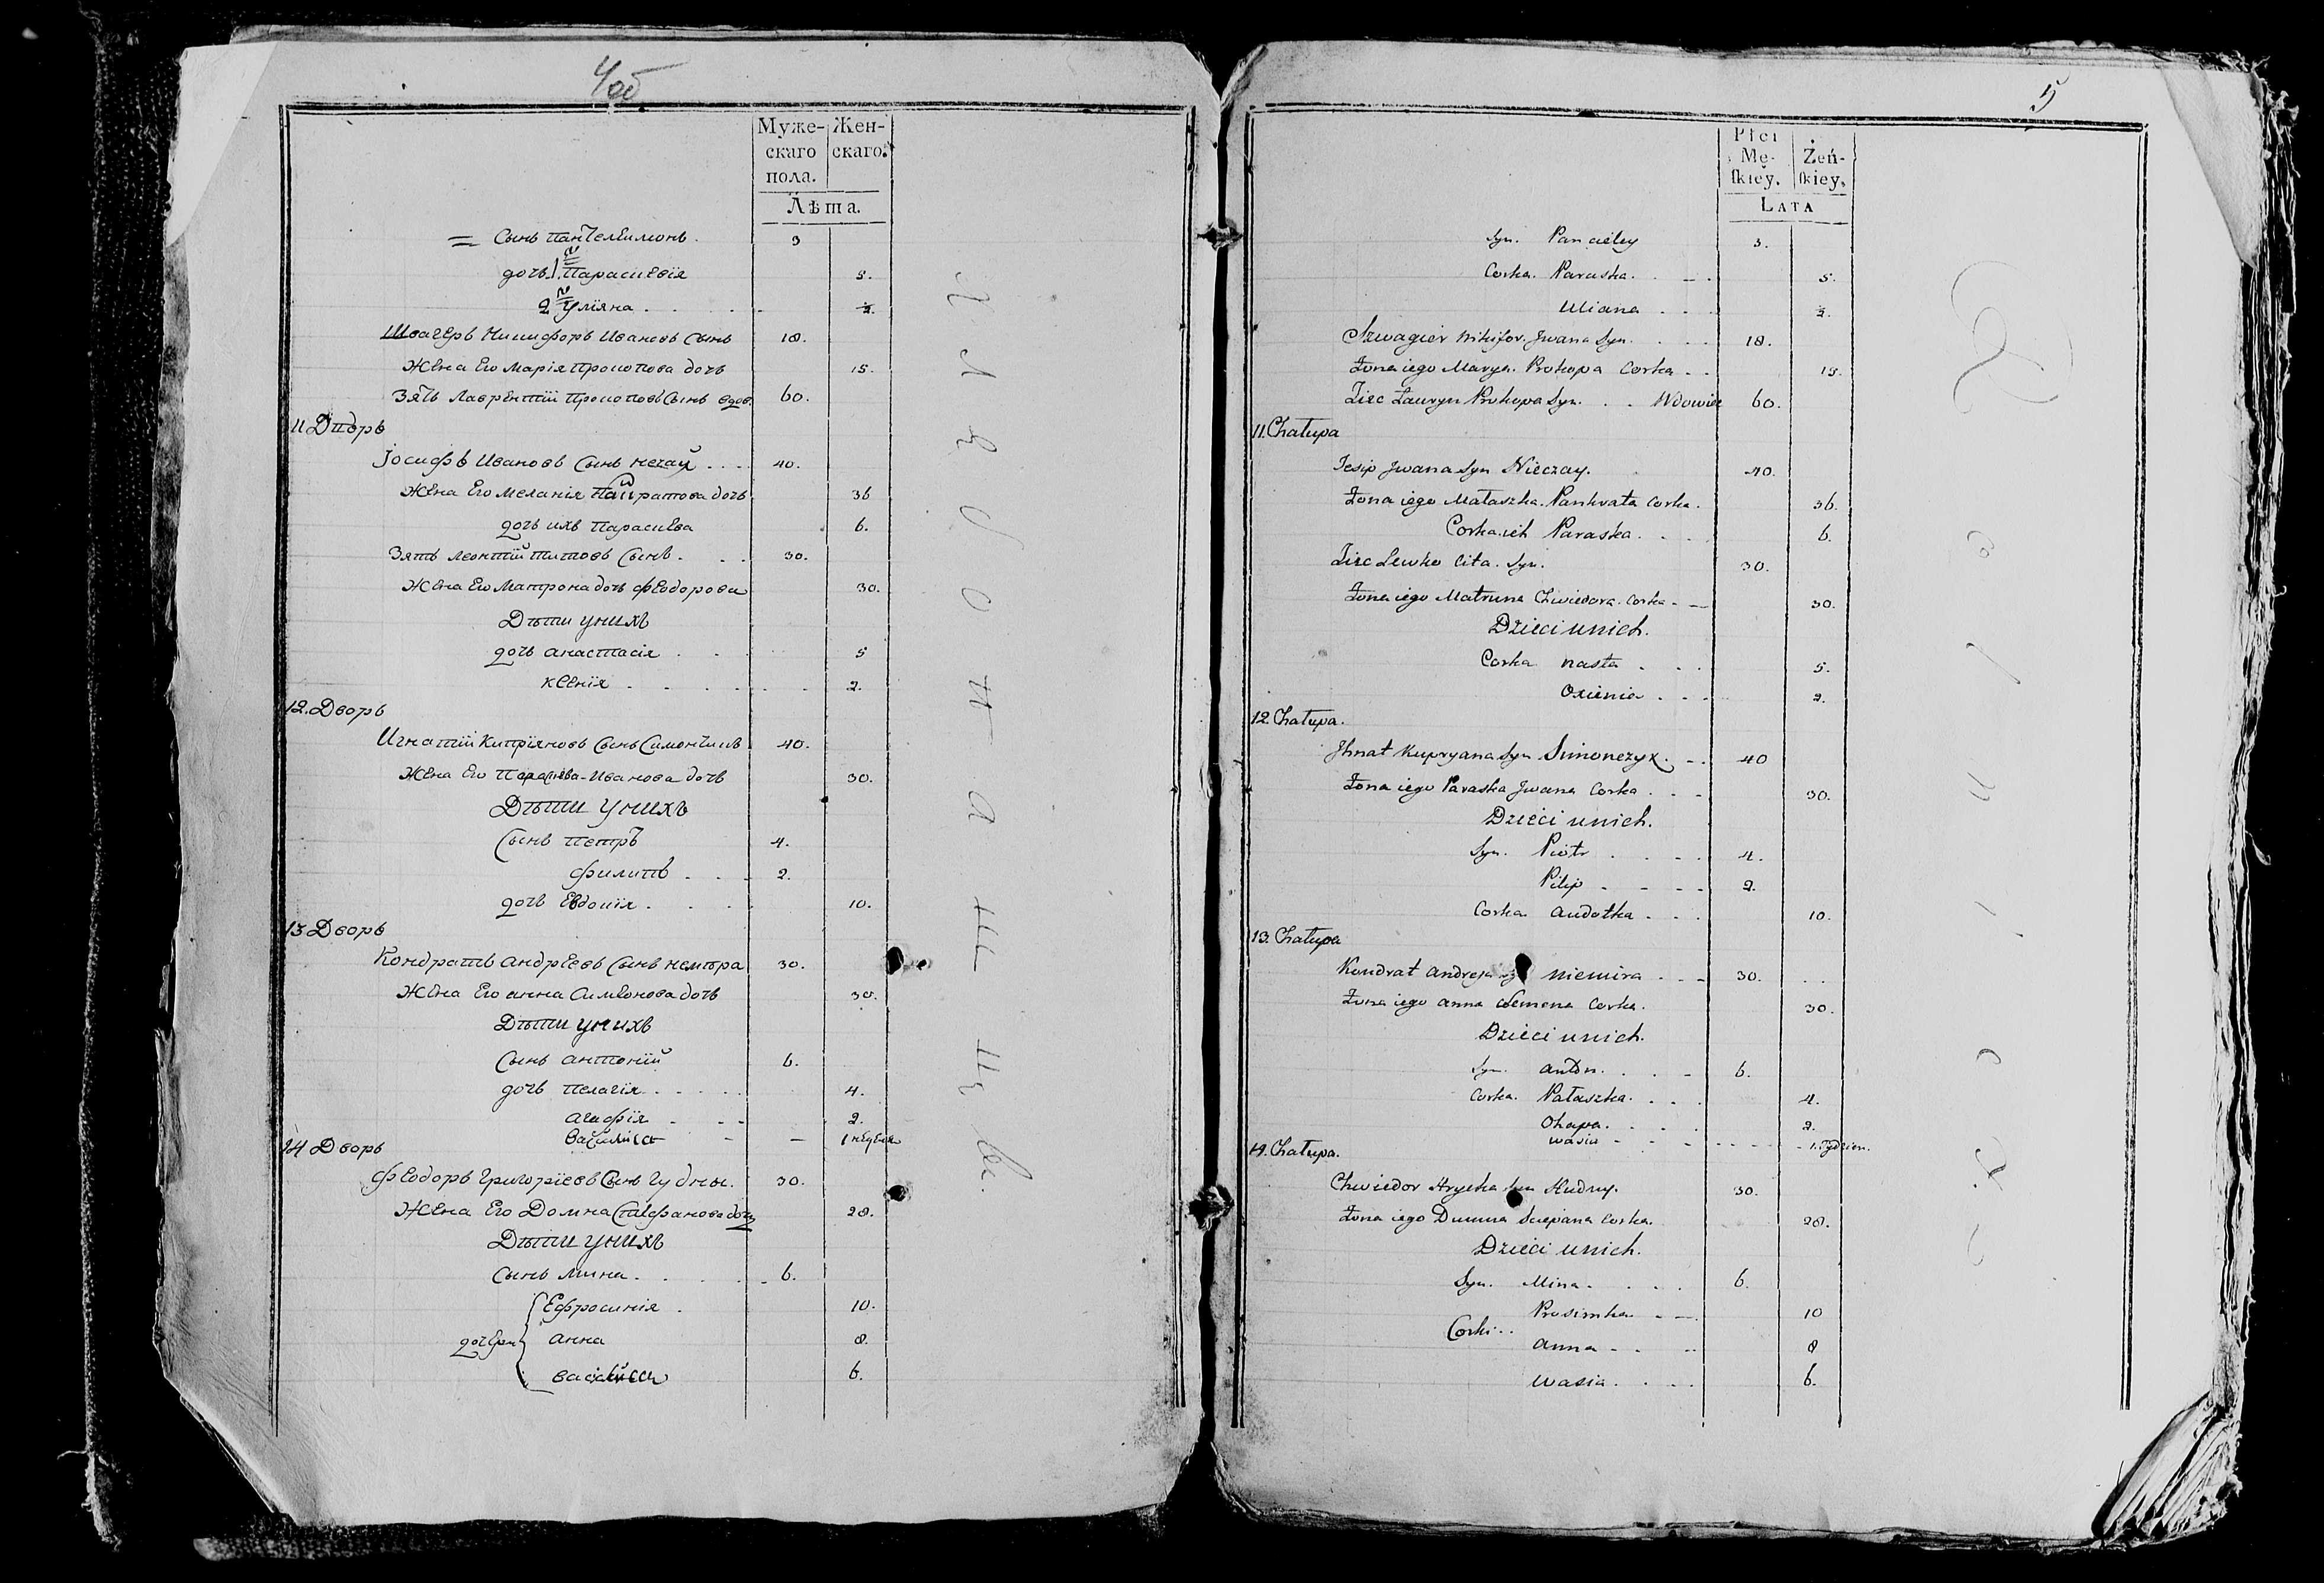 4об
Муже- Жен-
скаго скаго.
пола.
Лѣта.
Сынъ Пантелеимонъ. 3
дочь 1. я Параскевія 5.
2 я Улiяна . . . . . ½.
Швагеръ Никифоръ Ивановъ Сынъ 18.
Жена Его Марія Прокопова дочь 15.
Зять Лаврентій Прокоповъ Сынъ вдов. 60.
11 Дворъ
Іосифъ Ивановъ Сынъ Нечай . . . . 40.
Жена Его Меланія Панкратова дочь 36
дочь ихъ Параскева 6.
Зять Леонтій Титовъ Сынъ . . . 30.
Жена Его Матрона дочь Феодорова 30.
Дѣти у нихъ
дочь Анастасія . . 5
Ксенія . . . . . . 2.
12. Дворъ
Игнатій Кипріяновъ Сынъ Симончикъ 40.
Жена Его Параскева Иванова дочь 30.
Дѣти у нихъ
Сынъ Петръ 4.
Филипъ . . . 2.
дочь Евдокія . . . . 10.
13 Дворъ
Кондратъ Андреевъ Сынъ Немѣра 30.
Жена Его Анна Симеонова дочь 30.
Дѣти у нихъ
Сынъ Антоній 6.
дочь Пелагія . . . . . 4.
Агафія . . - - 2.
Василиса - - 1 неделя
14 Дворъ
Феодоръ Григоріевъ Сынъ Гудны. 30.
Жена Его Домна Стефанова дочь 28.
Дѣти у нихъ
Сынъ Мина . . . . . . 6.
Ефросинія . 10.
дочери Анна 8.
Василиса 6.
5
Płci
Mę- Żeń-
ſkiey. ſkiey.
LATA
Syn. Pancieley 3.
Corka. Paraska. . - . 5.
Uliana . . . ½.
Szwagier Nikifor. Jwana Syn. . . . 18.
Żona iego Marya. Prokopa Corka . . 15.
Zięc Łauryn Prokopa Syn. . . Wdowiec 60.
11. Chałupa
Josip Jwana Syn Nieczay. 40.
Żona iego Małaszka. Pankrata Corka. 36.
Corka ich Paraska. . . . 6.
Zięc Lewko Cita. Syn. 30.
Żona iego Matruna Chwiedora. Corka. - — 30.
Dzieci u nich.
Corka Nasta . . . 5.
Oxienia . . . 2.
12. Chałupa.
Jhnat Kupryana Syn Simonczyk. - . 40
Żona iego Paraska Jwana Corka . . - 30.
Dzieci u nich.
Syn. Piotr . . . . 4.
Pilip - - - - 2.
Corka Audotka . . . 10.
13. Chałupa
Kondrat Andreja Niemira . . - 30. . .
Żona iego Anna Semena Corka. 30.
Dzieci u nich.
Syn. Anton. . . - 6.
Corka. Pałaszka. . . . 4.
Ohapa. . . . . 2.
Wasia - - - - - - - 1. Tydzien.
14. Chałupa.
Chwiedor Hryćka Syn Hudny. 30.
Żona iego Dumna Sciepana Corka. 28.
Dzieci u nich.
Syn. Mina. . . . . 6.
Prosimka. - — 10
Corki . . Anna - . - 8
Wasia. . . . 6.